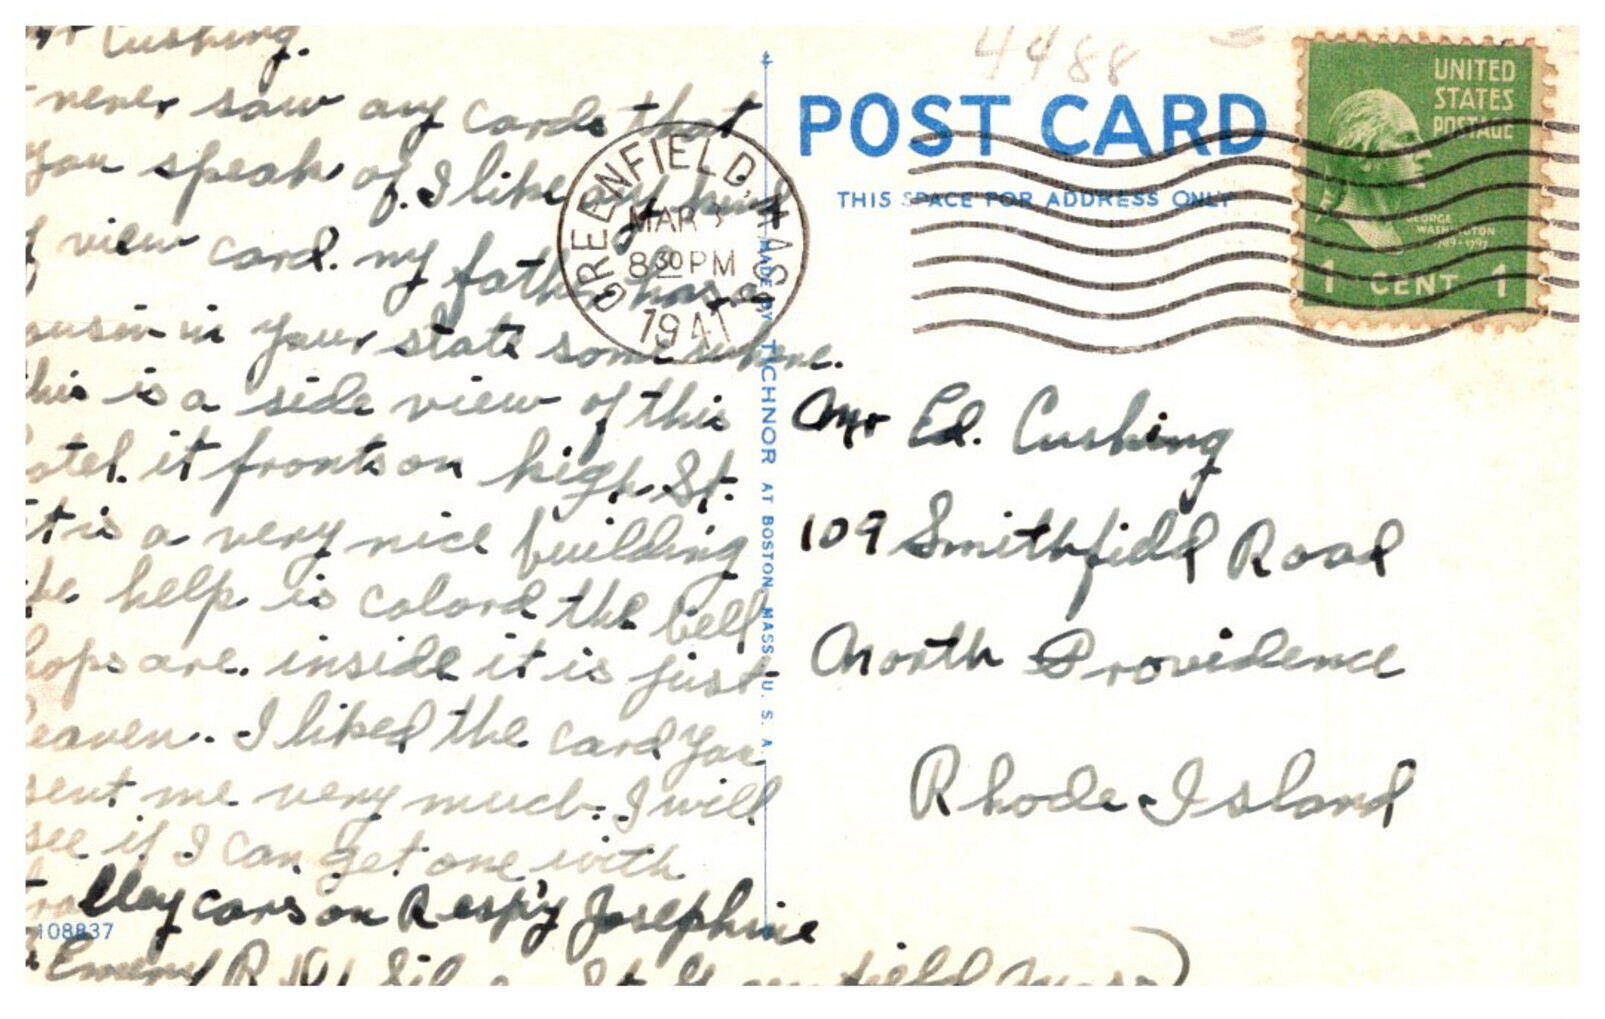 Cushing.
never saw any cards that
you speak of. I like any kind
of view card. my father has a
cousin in your state some where.
this is a side view of this
hotel. it fronts on high St.
it is a very nice building
the help is colord the bell
hops are. inside it is just
heaven. I liked the card you
sent me very much. I will
see if I can get one with
trolley cars on Resp'y Josephine
Emery St Greenfield Mass)
108837
MADE BY TICHNOR AT BOSTON, MASS., U. S. A.
GREENFIELD, MASS
MAR
8 30 PM
1941
4488
POST CARD
THIS SPACE FOR ADDRESS ONLY
UNITED
STATES
POSTAGE
GEORGE
WASHINGTON
1789-1797
1 CENT 1
Mr Ed. Cushing
109 Smithfield Road
North Providence
Rhode Island